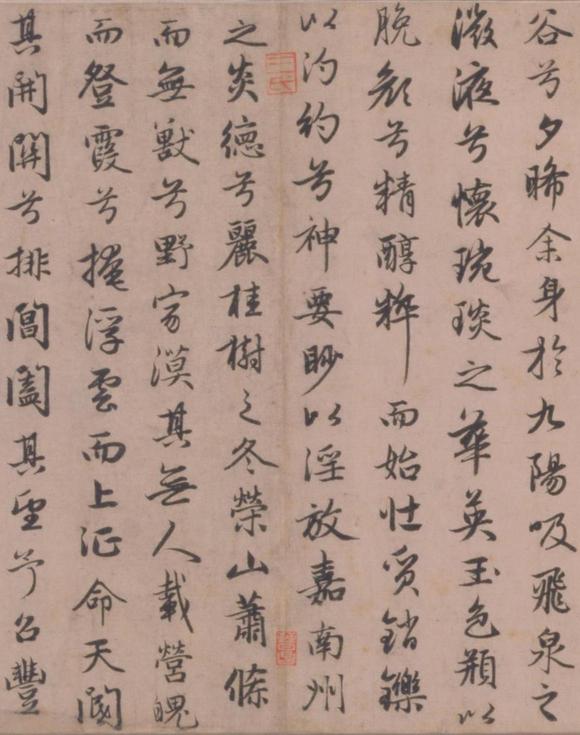 谷兮夕晞余身於九陽吸飛泉之
微液兮懷琬琰之華英玉色頩以
脕顏兮精醇粹而始壮質銷鑠
以汋約兮神要眇以淫放嘉南州
之炎德兮麗桂樹之冬榮山蕭條
而無獸兮野寂漠其無人載營魄
而登霞兮掩浮雲而上征命天閽
其開關兮排閶闔其望予召豐